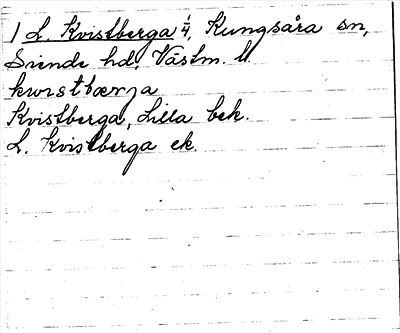 1 L. Kvistberga 1/4, Kungsåra sn,
Siende hd, Västm. l.
kwɩstbærja
Kvistberga, Lilla bek.
L. Kvistberga ek.